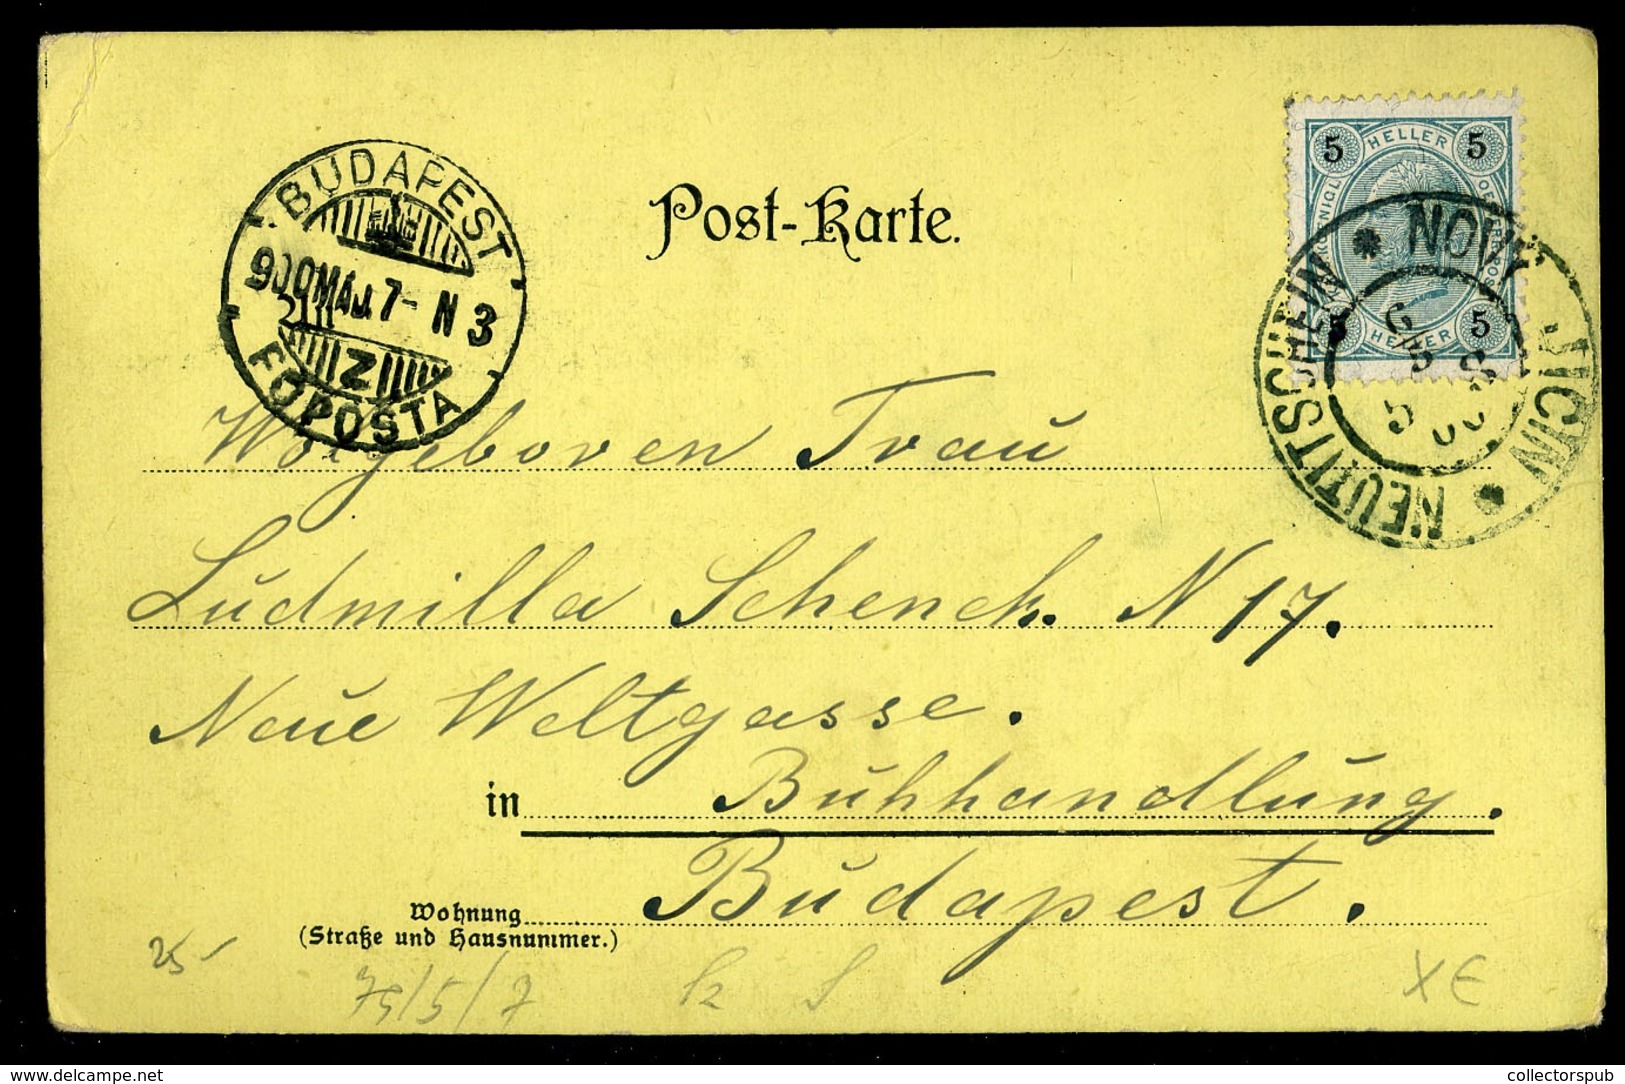 BUDAPEST
900 MAJ. 7- N 3
Z
FŐPOSTA
Post-Karte.
5 HELLER 5
5 HELLER 5
NOVÝ JIČIN * NEUTITSCHEIN *
6/5
5 00
Wolgeboren Frau
Ludmilla Schench. N 17.
Neue Weltgasse.
in Buhhandlung.
Budapest.
Wohnung
(Straße und Hausnummer.)
25-
75/5/7 k S
XE
www.delcampe.net
collectorspub